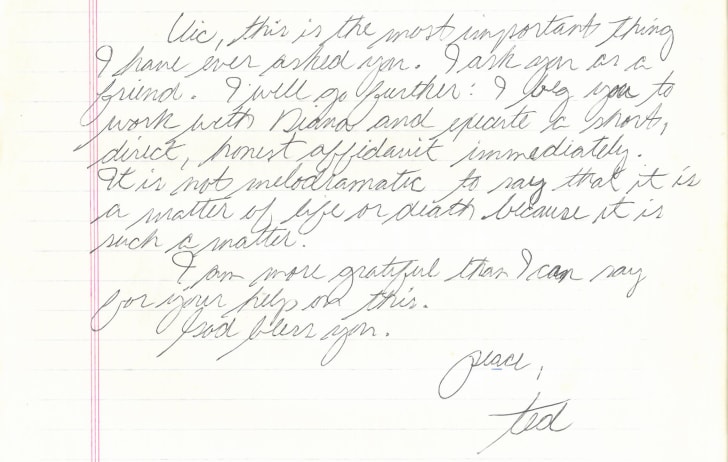 Vic, this is the most important thing
I have ever asked you. I ask you as a
friend. I will go further: I beg you to
work with Diana and execute a short,
direct, honest affidavit immediately.
It is not melodramatic to say that it is
a matter of life or death because it is
such a matter.
I am more grateful than I can say
for your help on this.
God bless you.
peace,
ted